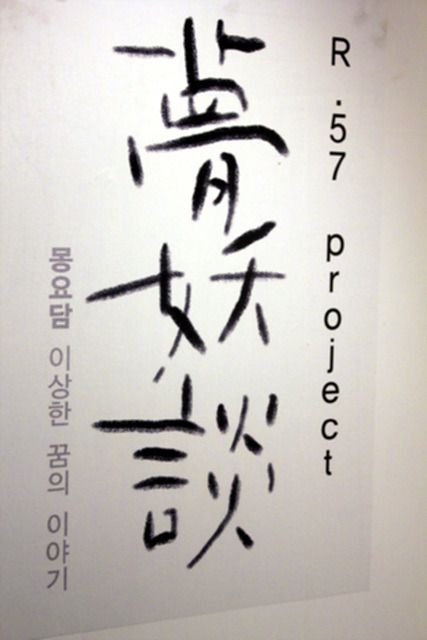 R.57 project
夢妖談
몽요담 이상한 꿈의 이야기